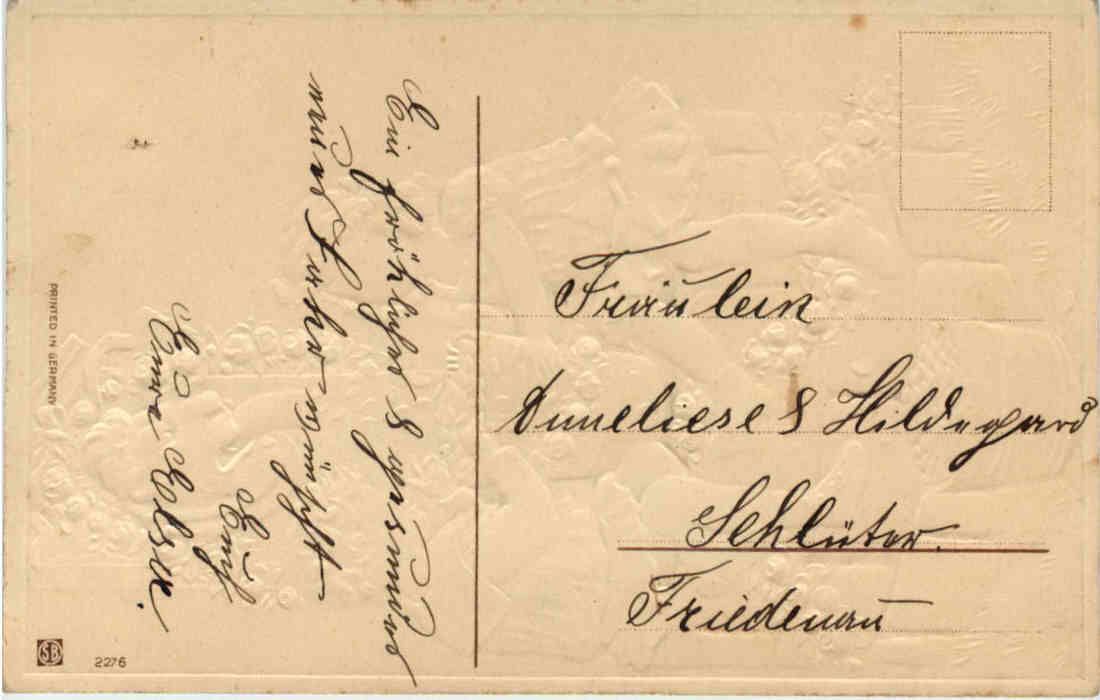 Ein fröhliches & gesundes
neues Jahr wünscht
Euch
Eure Elsa.
Fräulein
Anneliese & Hildegard
Schlüter.
Friedenau
PRINTED IN GERMANY
SB
2276